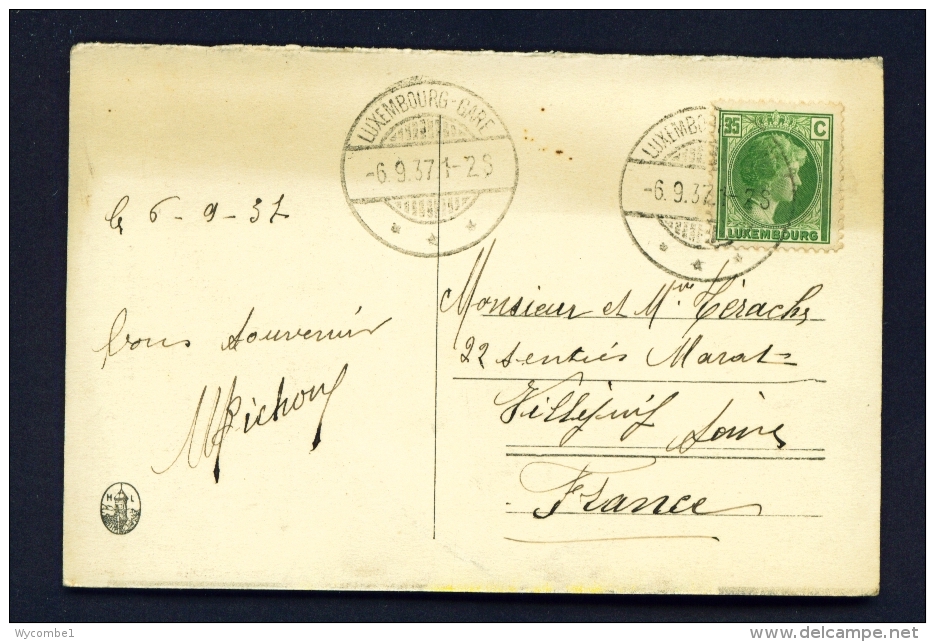 LUXEMBOURG-GARE
-6.9.37.1-2S
LUXEMBO
-6.9.37.1-2S
35 C
LUXEMBOURG
le 6-9-37
Bons souvenirs
MPichon
Monsieur et Mme
22 sentier Marat
Villejuif Seine
France
H L
Wycombe1
www.delcampe.net